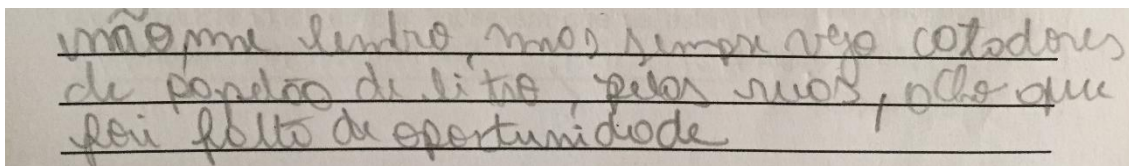 não me lembro, mas sempre vejo catadores
de papelão de litro, pelas ruas, acho que
foi falta de oportunidade